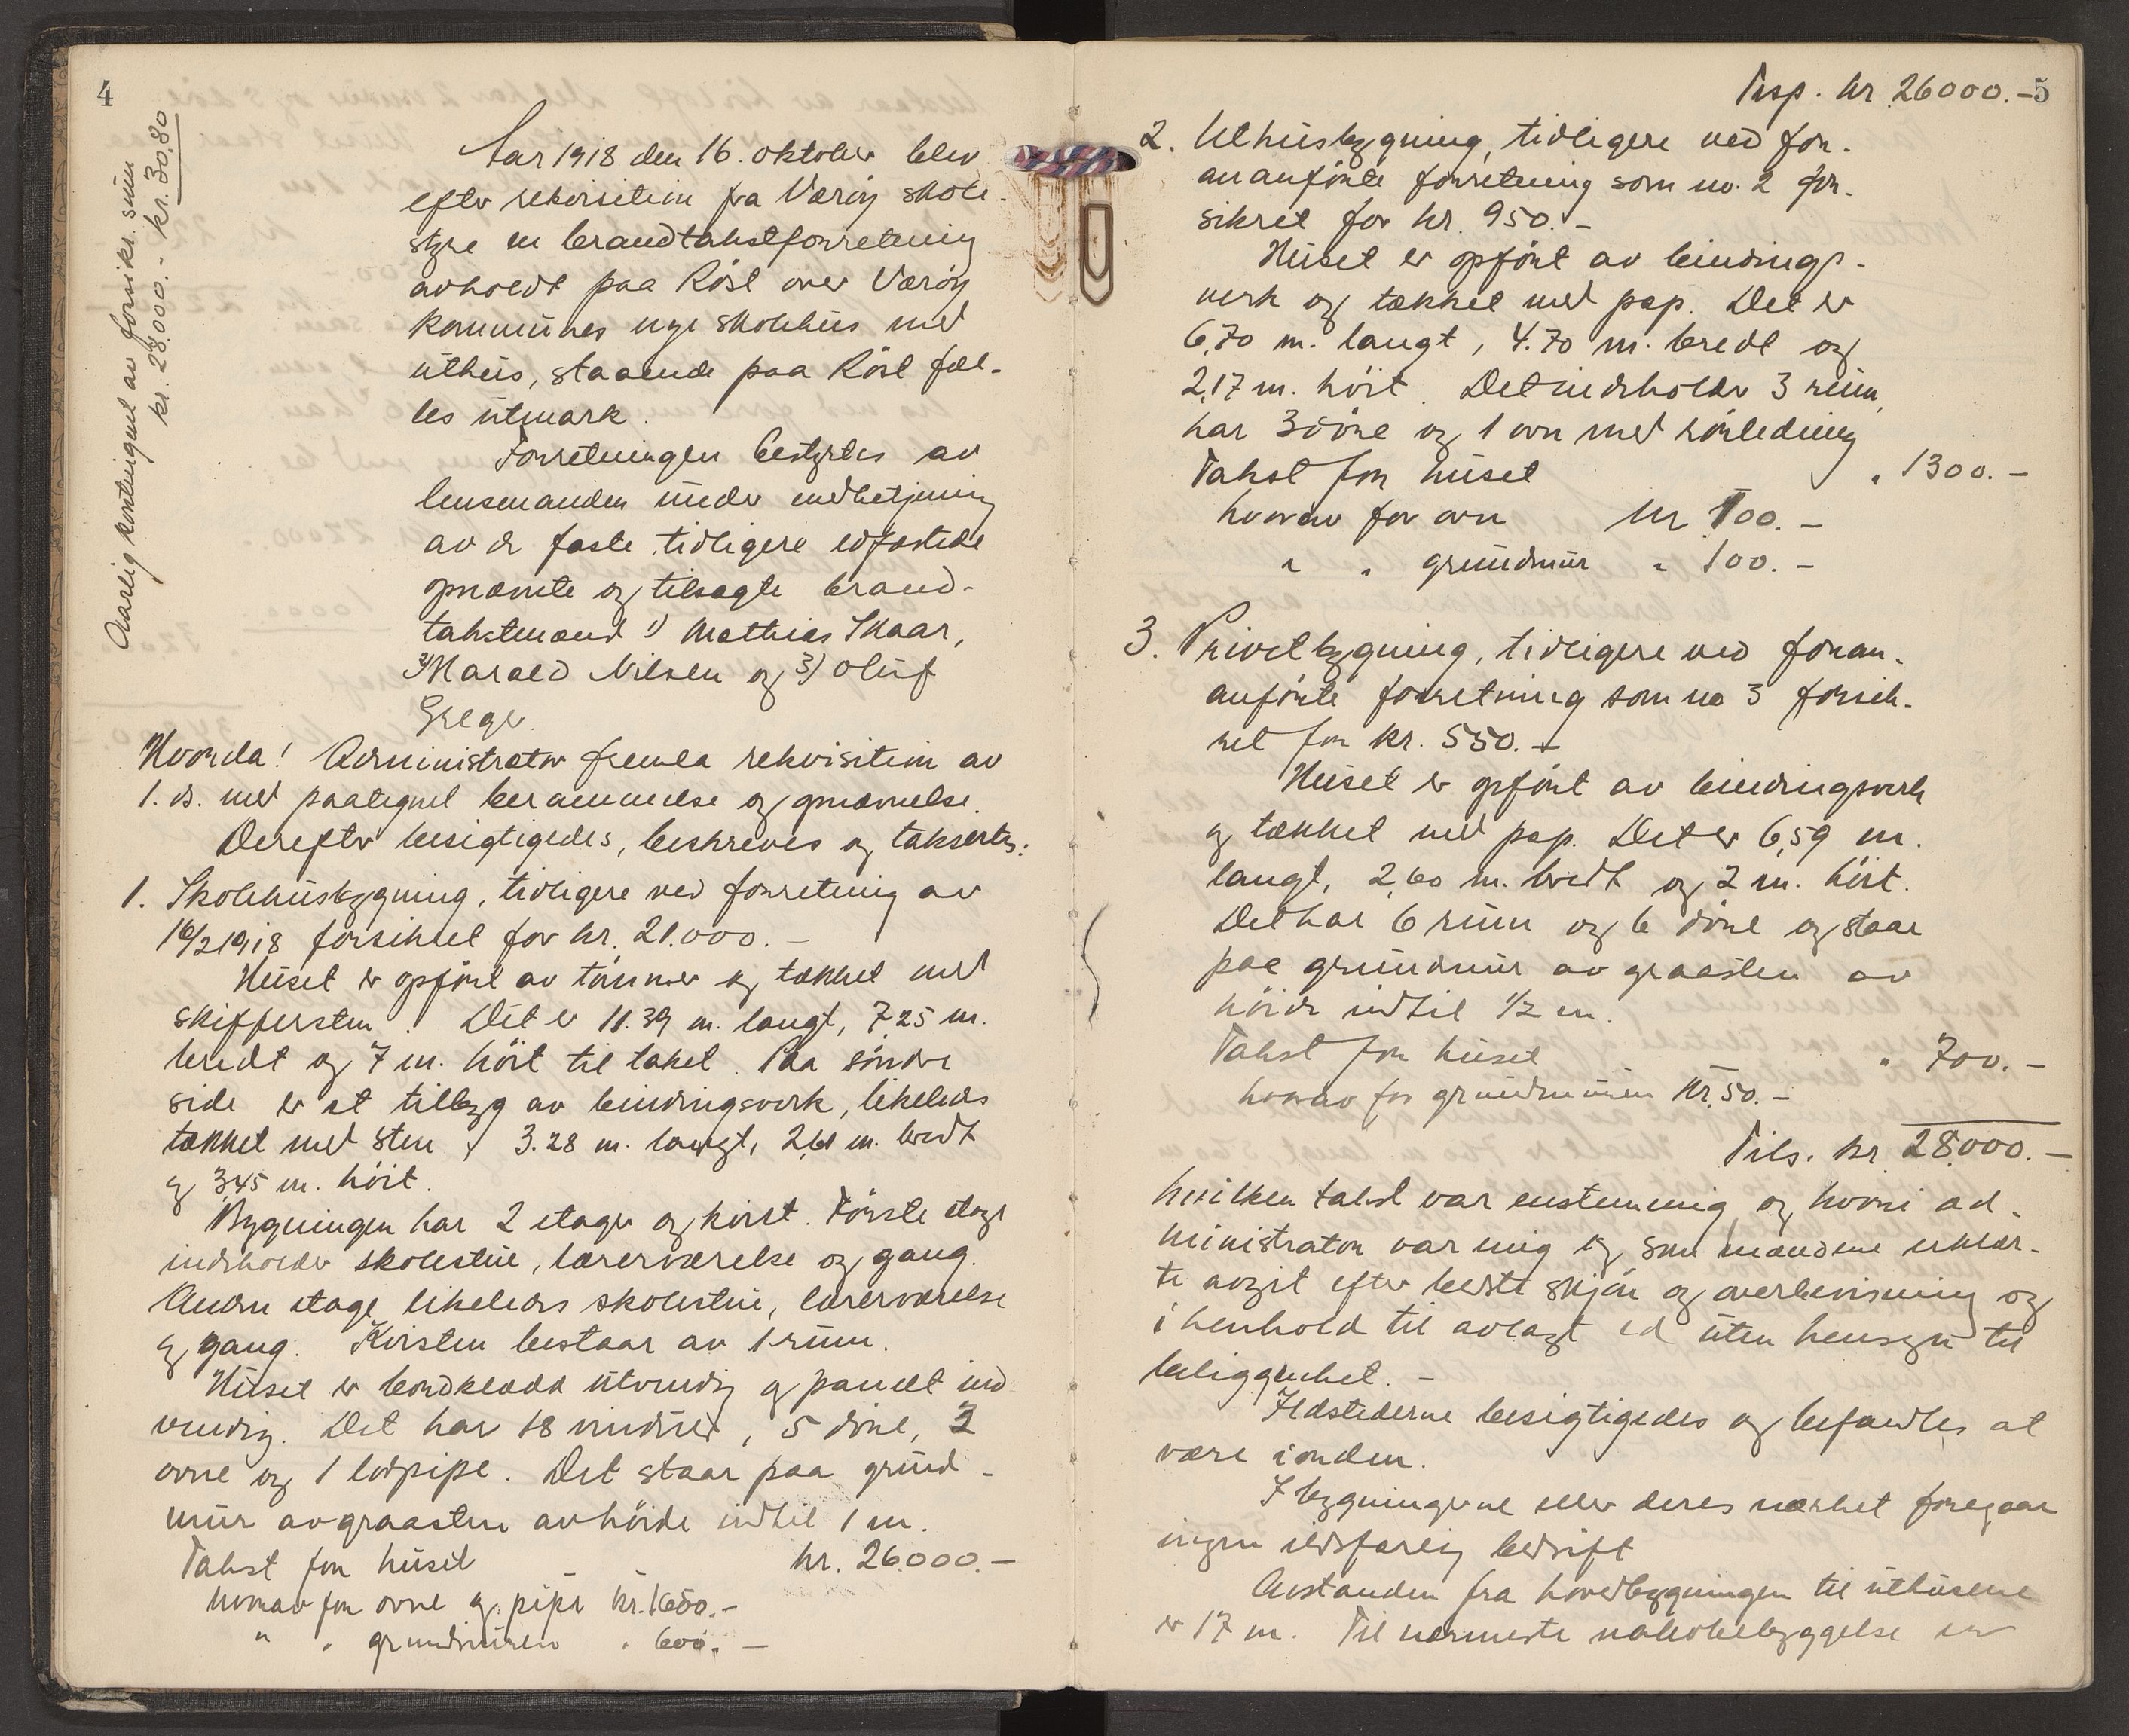 4
Aarlig kontingent av forsikr. sum
kr. 28.000.- kr. 30,80
Aar 1918 den 16. oktober blev
efter rekvisition fra Værøy skole-
styre en brandtakstforretning
avholdt paa Røst over Værøy
kommunes nye skolehus med
uthus, staaende paa Røst fæl-
les utmark.
Forretningen bestyrtes av
lensmanden under medbetjening
av de faste tidligere edfæstede
opnævnte og tilsagte brand-
takstmænd 1) Mathias Skaar,
2) Harald Nilsen og 3) Oluf
Greger.
Hvorda! Administrator fremla rekvisition av
1. ds. med paategnet berammelse og opnævnelse.
Derefter besigtigedes, beskreves og taksertes:
1. Skolehusbygning, tidligere ved forretning av
16/2 1918 forsikret for kr. 21.000.-
Huset er opført av tømmer og tækket med
skiffersten. Det er 11.39 m. langt, 7,25 m.
bredt og 7 m. høit til taket. Paa søndre
side er et tilbyg av bindingsverk, likeledes
tækket med sten, 3.28 m. langt, 2,61 m. bredt
og 3,45 m. høit.
Bygningen har 2 etager og kvist. Første etage
indeholder skolestue, lærerværelse og gang.
Anden etage likeledes skolestue, lærerværelse
og gang. Kvisten bestaar av 1 rum.
Huset er bordklædd utvendig og panelt ind
vendig. Det har 18 vinduer, 5 døre, 3
ovne og 1 lodpipe. Det staar paa grund-
mur av graasten av høide indtil 1 m.
Takst for huset kr. 26.000.-
hvorav for ovne og pipe kr. 1600.-
" " grundmuren " 600.-
Tr<span></span>sp. kr. 26000.- 5
2. Uthusbygning, tidligere ved for-
an anførte forretning som no. 2 for-
sikret for kr. 950.-
Huset er opført av bindings-
verk og tækket med pap. Det er
6,70 m. langt, 4.70 m. bredt og
2,17 m. høit. Det indeholder 3 rum,
har 3 døre og 1 ovn med rørledning
Takst for huset " 1300.-
hvorav for ovn kr 100.-
" " grundmur " 100.-
3. Privetbygning, tidligere ved foran-
anførte forretning som no 3 forsik-
ret for kr. 550.-
Huset er opført av bindingsverk
og tækket med pap. Det er 6,59 m.
langt, 2,60 m. bredt og 2 m. høit.
Det har 6 rum og 6 døre og staar
paa grundmur av graasten av
høide indtil 1/2 m.
Takst for huset " 700.-
hvorav for grundmuren kr. 50.-
Tils. kr. 28.000.-
hvilken takst var enstemmig og hvori ad-
ministrator var enig og som mændene erklær-
te avgit efter bedste skjøn og overbevisning og
i henhold til avlagt ed uten hensyn til
beliggenhet.-
Ildstederne besigtigedes og befandtes at
være i orden.
I bygningerne eller deres nærhet foregaar
ingen ildsfarlig bedrift
Avstanden fra hovedbygningen til uthusene
er 17 m. Til nærmeste nabobebyggelse er